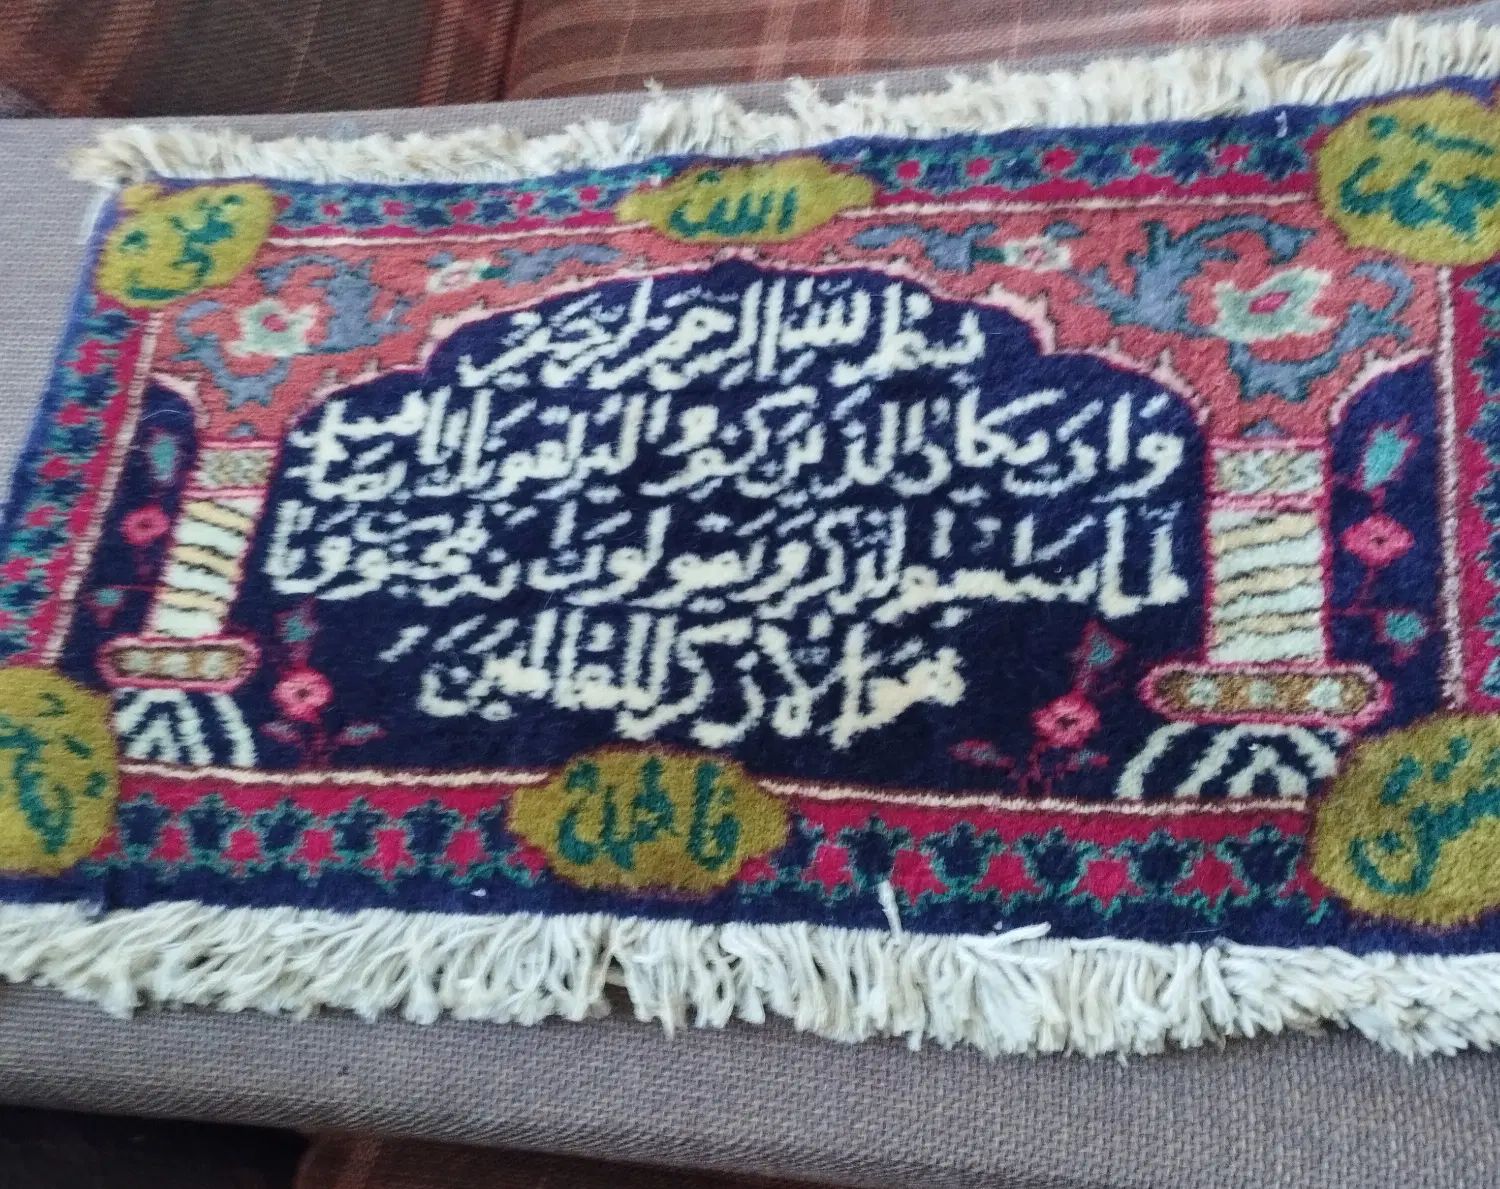 محمد
الله
علی
بسم الله الرحمن الرحیم
وَاِن یَکادُ الَّذینَ کَفَرُوا لَیُزلِقُونَکَ بِاَبصارِهِم
لَمّا سَمِعُوا الذِّکرَ وَیَقُولُونَ اِنَّهُ لَمَجنُونٌ وَما
هُوَ اِلّا ذِکرٌ لِلعالَمینَ
حسن
فاطمه
حسین